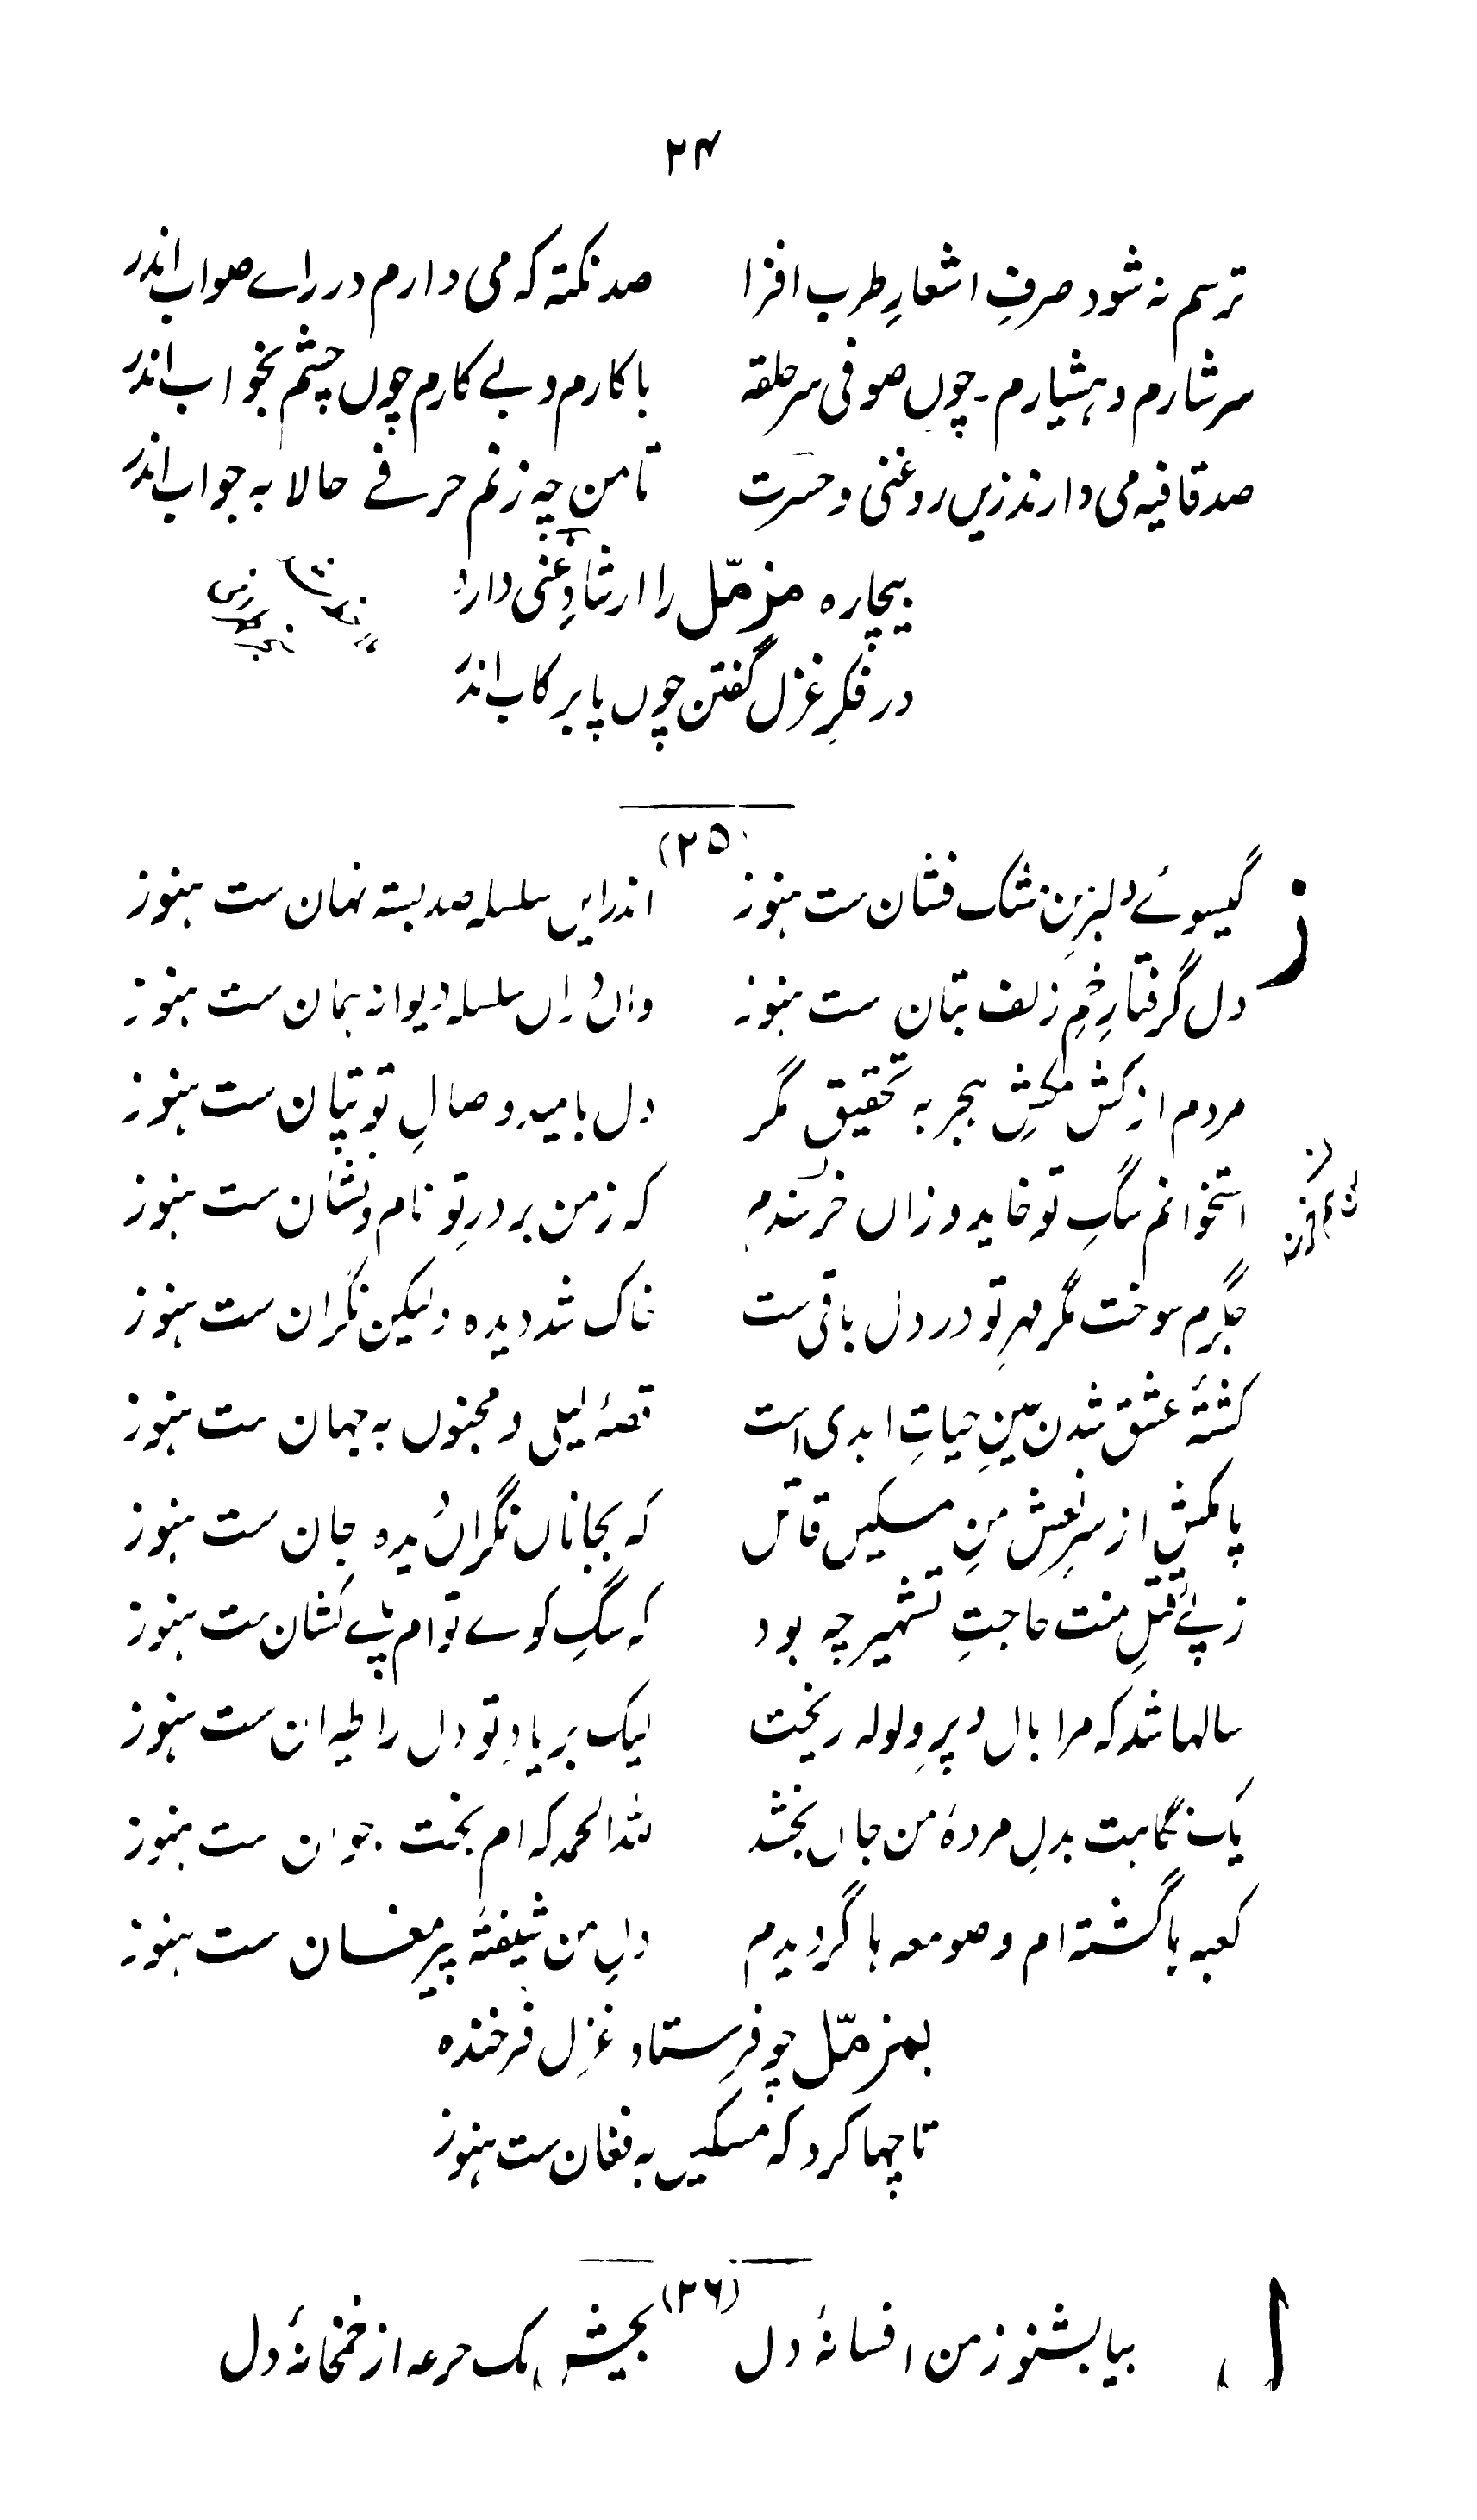 ۲۴
ترسم نه شود صرفِ اشعارِ طرب افزا صد نکته که می دارم در راے صواب اندر
سرشارم و ہشیارم۔ چوں صوفی سر حلقہ با کارم و بے کارم چوں چشم بخواب اندر
صد قافیہ می دارند زیں رو غنی و حسرت تا من چه زنم حرفے حالا به جواب اندر
بیچاره مزمّل را ارشادِ غنی دارد
در فکرِ غزل گفتن چوں پا برکاب اندر
(۲۵)
ز
گیسوئے دلبرِ من مشک فشان ست ہنوز اندرایں سلسلہ صد بستہ نہان ست ہنوز
دل گرفتارِ خمِ زلف بتان ست ہنوز واں دراں سلسلہ دیوانہ ہمان ست ہنوز
مردم از کش مکشِ ہجر به تحقیق مگر دل بامید وصالِ تو تپان ست ہنوز
استخوانم سگِ تو خاید و زاں خرسندم که زمن بر درِ تو نام و نشان ست ہنوز
جگرم سوخت مگر مہرِ تو در دل باقی ست خاک شد دیده ولیکن نگران ست ہنوز
کشتۂ عشق شدن عینِ حیاتِ ابدی است قصۂ لیلی و مجنوں به جہان ست ہنوز
پا مکش از سرِ نعشِ منِ مسکیں قاتل که بجاناں نگراں دیده جان ست ہنوز
ز پئے قتلِ منت حاجتِ تشہیر چه بود که سگِ کوے توام پے کشان ست ہنوز
سالہا شد که مرا بال و پرِ ولولہ ریخت لیک بر یادِ تو دل را طیران ست ہنوز
یک نگاہت بدلِ مردۂ من جاں بخشد للہ الحمد که ام بخت جوان ست ہنوز
کعبہ ہا گشتہ ام و صومعہ ہا گردیدم دلِ من شیفتۂ پیرِ مغان ست ہنوز
بمزمّل چو فرستاد غزل فرخنده
تا چہا کرد که مسکیں به فغان ست ہنوز
(۲۶)
ل
بیا بشنو ز من افسانۂ دل یک جرعہ از خمخانۂ دل